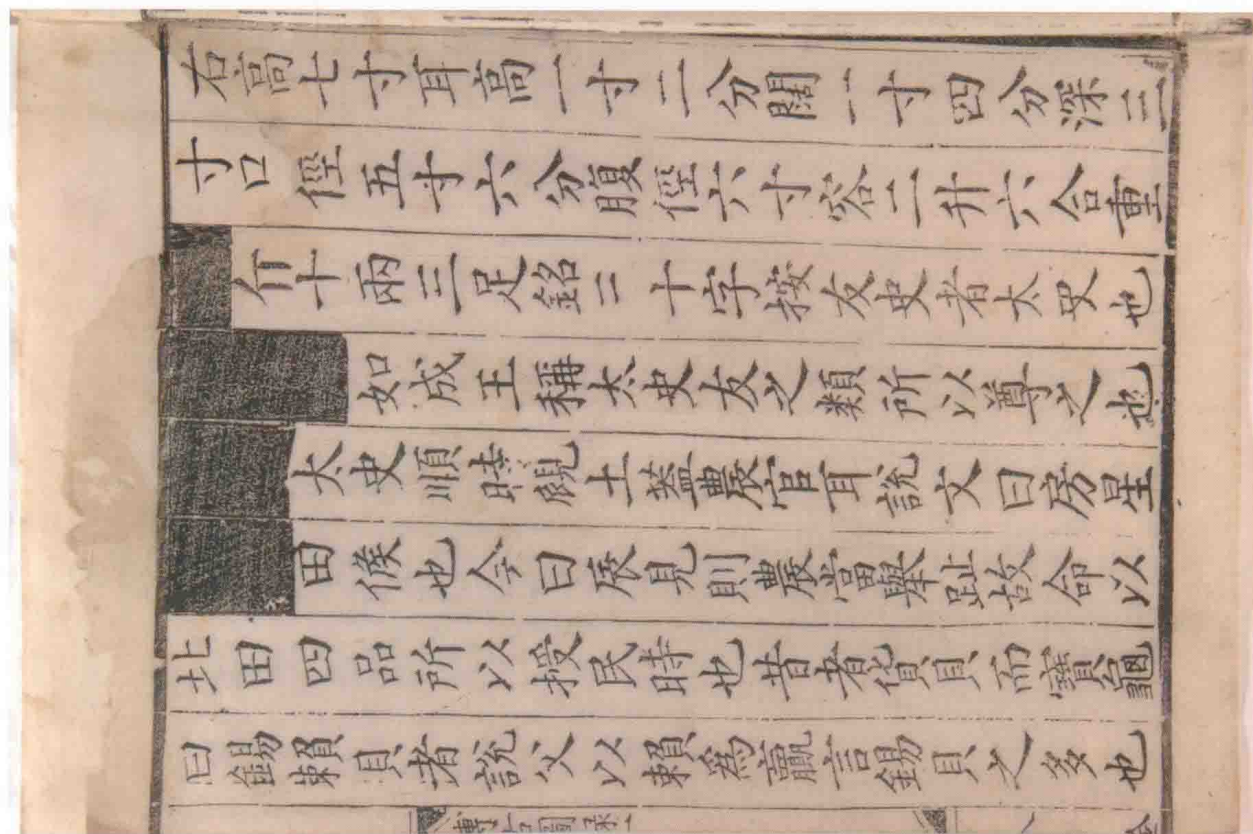 右高七寸耳高一寸二分闊一寸四分深三
寸口俓五寸六分腹俓六寸容二升六合重
斤十兩三足銘二十字按友史者太史也
如成王稱太史友之類所以尊之也
太史順時覛土蓋農官耳說文曰房星
田候也今曰辰見則農當舉趾故命以
北田四品所以授民時也昔者貨貝而寶龜
曰錫賴貝者說父以賴爲贏言錫貝之多也
博古圖